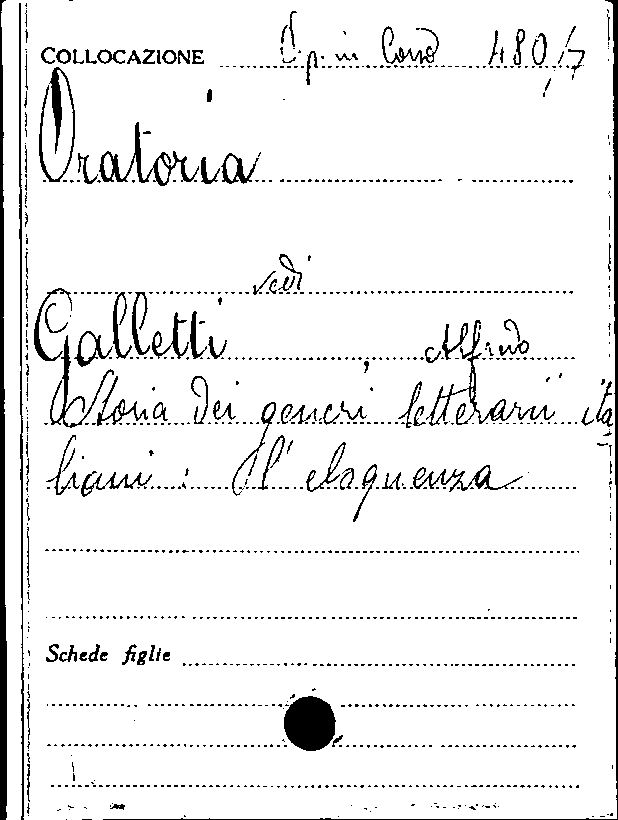 COLLOCAZIONE Op. in Corso 480/7
Oratoria
vedi
Galletti, Alfredo
Storia dei generi letterarii ita
liani: L'eloquenza
Schede figlie